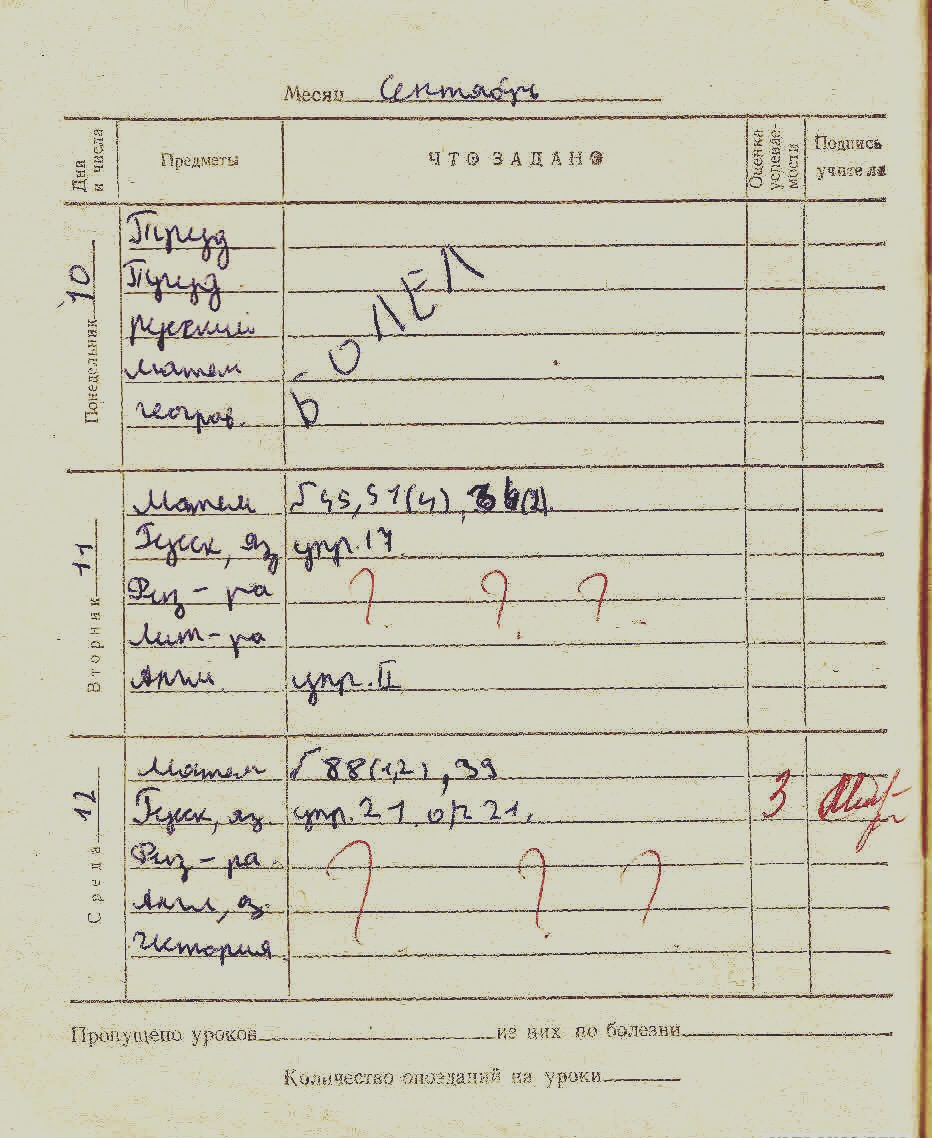 Месяц Сентябрь
Дни и числа Предметы ЧТО ЗАДАНО Оценка успевае-мости Подпись учителя
Понедельник 10
Труд
Труд
русский
матем
географ.
БОЛЕЛ
Вторник 11
Матем √45, 51(4),
Русск, яз упр. 17
Физ-ра ? ? ?
Лит-ра
Англ упр. II
Среда 12
Матем √88(1,2), 39
Русск, яз. упр. 21. о/р 21. 3
Физ-ра ? ? ?
Англ, яз.
История
Пропущено уроков из них по болезни
Количество опозданий на уроки